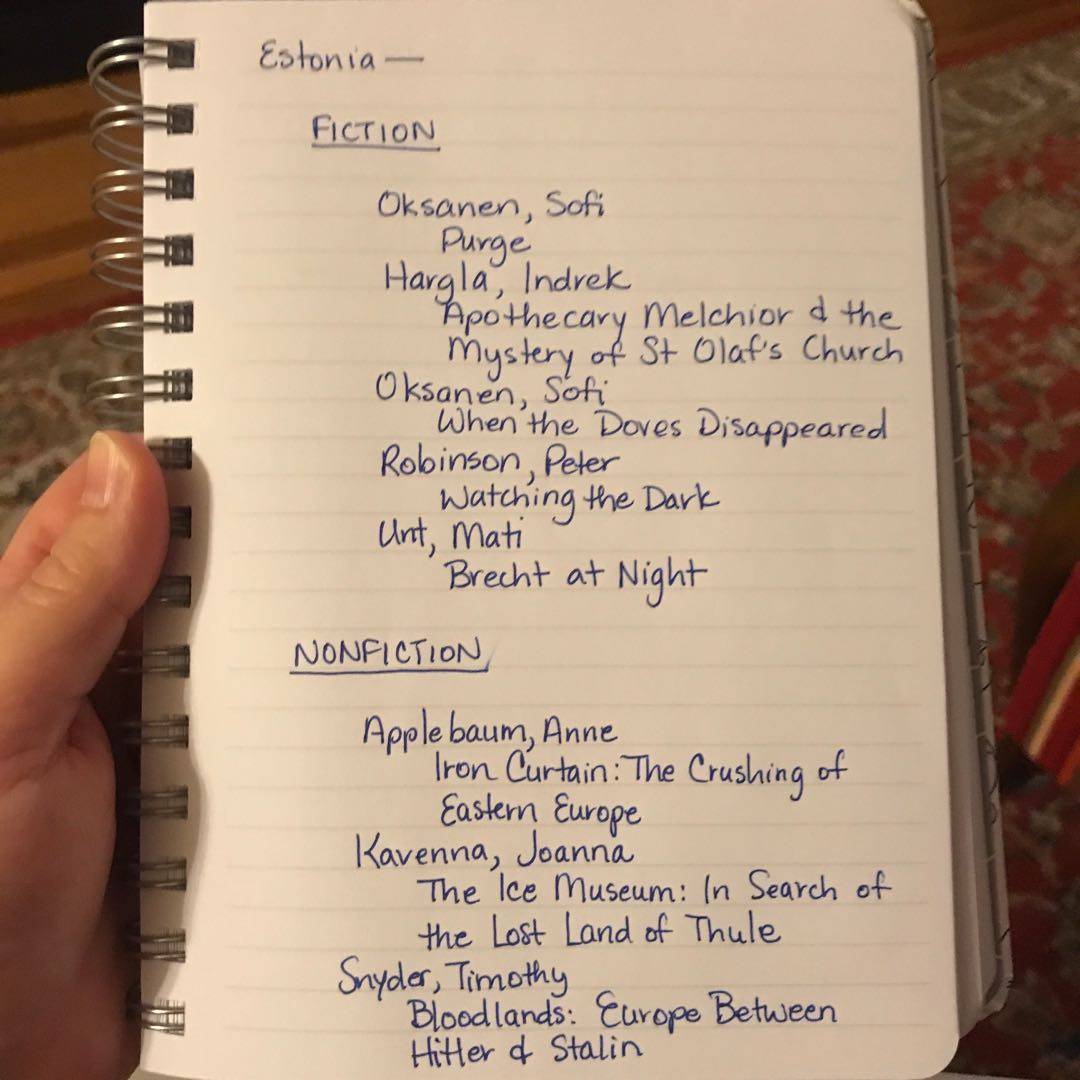 Estonia —
FICTION
Oksanen, Sofi
Purge
Hargla, Indrek
Apothecary Melchior & the
Mystery of St Olaf's Church
Oksanen, Sofi
When the Doves Disappeared
Robinson, Peter
Watching the Dark
Unt, Mati
Brecht at Night
NONFICTION
Applebaum, Anne
Iron Curtain: The Crushing of
Eastern Europe
Kavenna, Joanna
The Ice Museum: In Search of
the Lost Land of Thule
Snyder, Timothy
Bloodlands: Europe Between
Hitler & Stalin